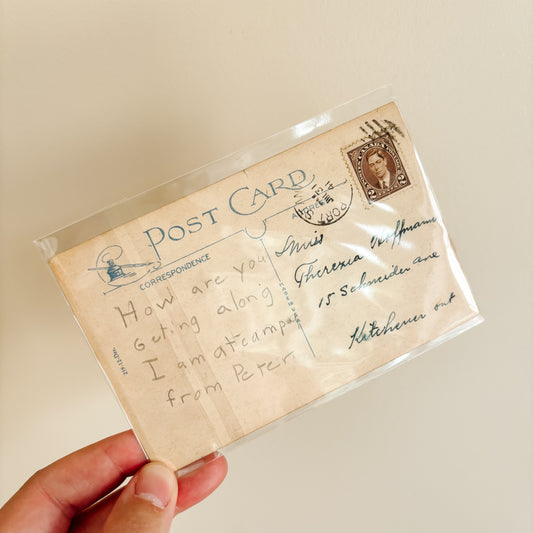 POST CARD
CORRESPONDENCE
ADDRESS
How are you
Getting along
I am at camp
from Peter
CANADA
2
2
PORT
Miss
Therezia Hoffmann
15 Schneider Ave
Kitchener Ont